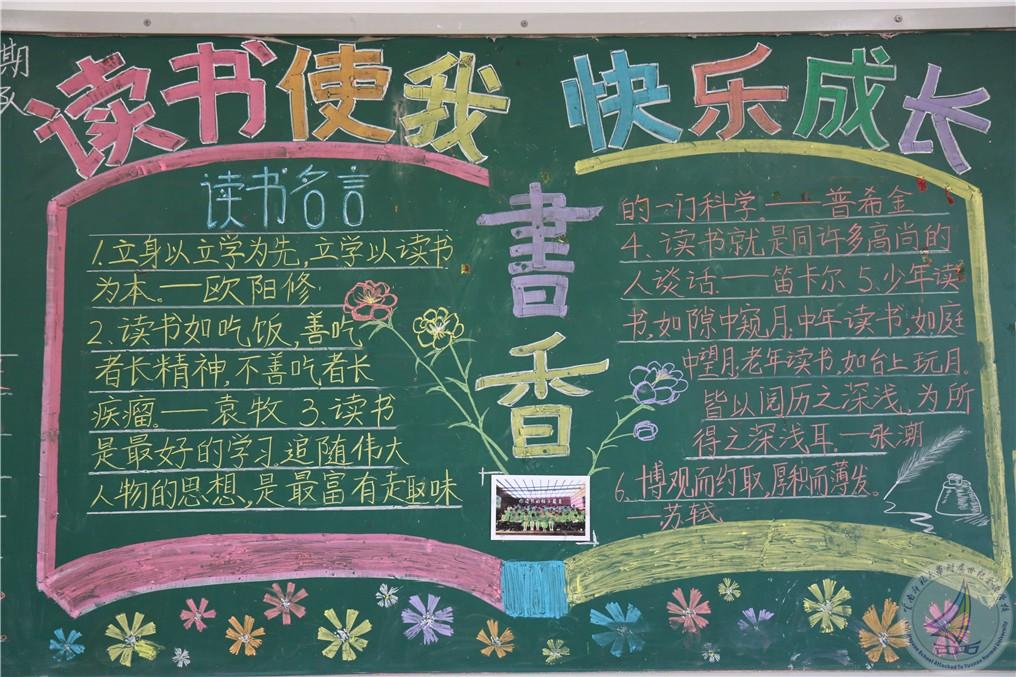 读书使我 快乐成长
读书名言
1.立身以立学为先,立学以读书
为本。—欧阳修
2.读书如吃饭,善吃
者长精神,不善吃者长
疾瘤。—袁牧 3.读书
是最好的学习.追随伟大
人物的思想,是最富有趣味
書香
的一门科学。——普希金
4、读书就是同许多高尚的
人谈话.——笛卡尔 5.少年读
书,如隙中窥月;中年读书,如庭
中望月;老年读书,如台上玩月.
皆以阅历之深浅,为所
得之深浅耳.—张潮
6、博观而约取,厚积而薄发。
—苏轼
期